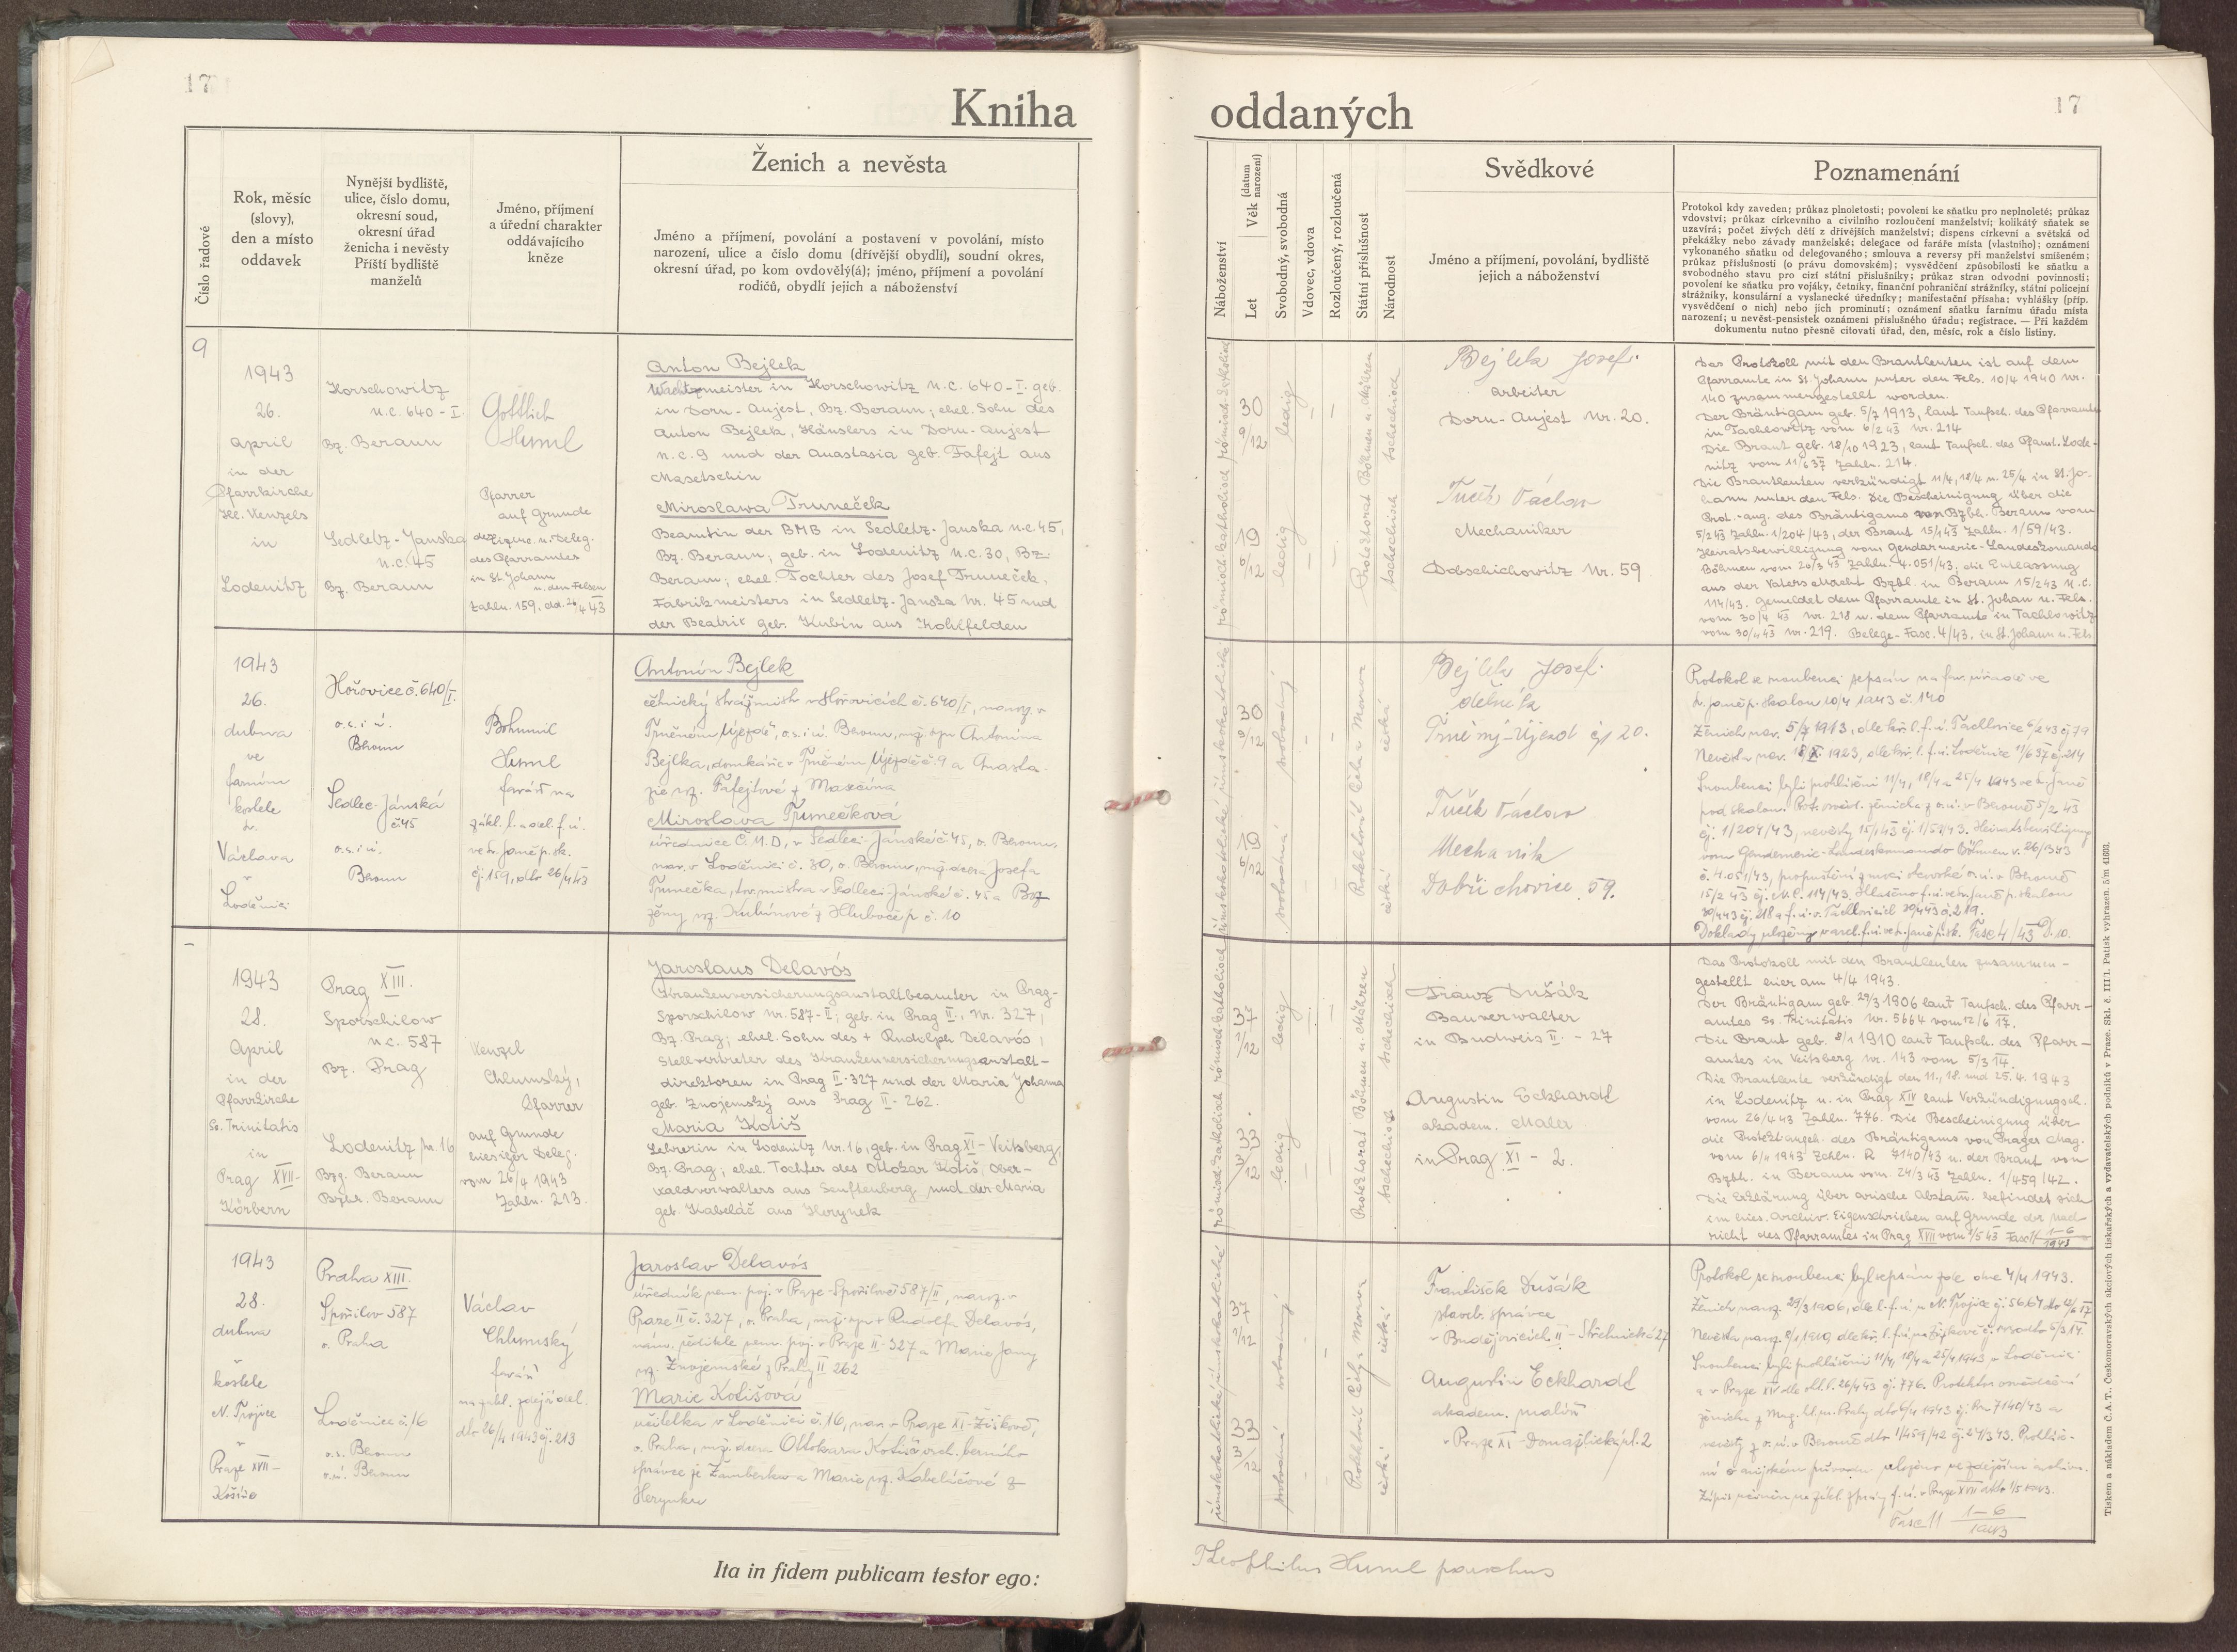 17
Kniha
oddaných
17
Číslo řadové
Rok, měsíc
(slovy),
den a místo
oddavek
Nynější bydliště,
ulice, číslo domu,
okresní soud,
okresní úřad
ženicha i nevěsty
Příští bydliště
manželů
Jméno, příjmení
a úřední charakter
oddávajícího
kněze
Ženich a nevěsta
Jméno a příjmení, povolání a postavení v povolání, místo
narození, ulice a číslo domu (dřívější obydlí), soudní okres,
okresní úřad, po kom ovdověly(á); jméno, příjmení a povolání
rodičů, obydlí jejich a náboženství
Náboženství
Let
Věk (datum narození)
Svobodný, svobodná
Vdovec, vdova
Rozloučený, rozloučená
Státní příslušnost
Národnost
Svědkové
Jméno a příjmení, povolání, bydliště
jejich a náboženství
Poznamenání
Protokol kdy zaveden; průkaz plnoletosti; povolení ke sňatku pro neplnoleté; průkaz
vdovství; průkaz církevního a civilního rozloučení manželství; kolikátý sňatek se
uzavírá; počet živých dětí z dřívějších manželství; dispens církevní a světská od
překážky nebo závady manželské; delegace od faráře místa (vlastního); oznámení
vykonaného sňatku od delegovaného; smlouva a reversy při manželství smíšeném;
průkaz příslušnosti (o právu domovském); vysvědčení způsobilosti ke sňatku a
svobodného stavu pro cizí státní příslušníky; průkaz stran odvodní povinnosti;
povolení ke sňatku pro vojáky, četníky, finanční pohraniční strážníky, státní policejní
strážníky, konsulární a vyslanecké úředníky; manifestační přísaha; vyhlášky (příp.
vysvědčení o nich) nebo jich prominutí; oznámení sňatku farnímu úřadu místa
narození; u nevěst-pensistek oznámení příslušného úřadu; registrace. — Při každém
dokumentu nutno přesně citovati úřad, den, měsíc, rok a číslo listiny.
9
1943
26.
April
in der
Pfarrkirche
Hl. Wenzels
in
Lodenitz
Horschowitz
N.C. 640-I.
Bz. Beraun
Sedletz-Janska
N.C. 45
Bz. Beraun
Gottlieb
Huml
Pfarrer
auf Grunde
des Pfarramtes
in St. Johann
u. den Felsen
Zahln. 159, dd. 26/4 43
Anton Bejlek
Wachtmeister in Horschowitz N.C. 640-I. geb.
in Dorn-Aujest, Bz. Beraun; ehel. Sohn des
Anton Bejlek, Häuslers in Dorn-Aujest
N.C. 9 und der Anastasia geb. Fafejt aus
Masetschin
Miroslawa Truneček
Beamtin der BMB in Sedletz-Janska N.C. 45,
Bz. Beraun; geb. in Lodenitz N.C. 30, Bz.
Beraun; ehel. Tochter des Josef Truneček,
Fabrikmeisters in Sedletz-Janska Nr. 45 und
der Beatrix geb. Kubin aus Hohlfelden
römisch-katholisch römisch-katholisch
30
9/12
ledig
19
6/12
ledig
Protektorat Böhmen u. Mähren
tschechisch tschechisch
Bejlek Josef.
Arbeiter
Dorn-Aujest Nr. 20.
Tuček Václav
Mechaniker
Dobschichowitz Nr. 59
Das Protokoll mit den Brautleuten ist auf dem
Pfarramte in St. Johann unter den Fels. 10/4 1940 Nr.
140 zusammengestellt worden.
Der Bräutigam geb. 5/7 1913, laut Taufsch. des Pfarramts
in Tachlowitz vom 6/2 43 Nr. 214
Die Braut geb. 18/10 1923, laut Taufsch. des Pfaml. Lode-
nitz vom 11/6 37 Zahln. 214.
Die Brautleuten verkündigt 11/4, 18/4 u. 25/4 in St. Jo-
hann unter den Fels. Die Bescheinigung über die
Prot.-ang. des Bräutigams von Bzbh. Beraun vom
5/2 43 Zahln. 1/204/43, der Braut 15/1 43 Zahln. 1/59/43.
Heiratsbewilligung vom Gendarmerie-Landeskomando
Böhmen vom 26/3 43 Zahln. 4.051/43; die Entlassung
aus der Vaters Macht Bzbl. in Beraun 15/2 43 N.C.
114/43. Gemeldet dem Pfarramte in St. Johan u. Fels.
vom 30/4 43 Nr. 218 u. dem Pfarramte in Tachlowitz
vom 30/4 43 Nr. 219. Belege-Fasc. 4/43, in St. Johann u. Fels.
1943
26.
dubna
ve
farním
kostele
sv.
Václava
v
Loděnici
Hořovice č. 640/I.
o.s. i ú.
Beroun
Sedlec-Jánská
č 45
o.s. i ú.
Beroun
Bohumil
Huml
farář na
zákl. f. a del. f. ú.
ve sv. Janě p. sk.
čj. 159, dto 26/4 43
Antonín Bejlek
četnický strážmistr v Hořovicích č. 640/I, naroz. v
Trněném Újezdě, o.s. i ú. Beroun, mž. syn Antonína
Bejlka, domkáře v Trněném Újezdě č. 9 a Anasta-
zie roz. Fafejtové z Masečína
Miroslava Trunečková
úřednice Č.M.D, v Sedleci-Jánské č. 45, o. Beroun,
nar. v Loděnici č. 30, o. Beroun, mž. dcera Josefa
Trunečka, tov. mistra v Sedleci Jánské č. 45 a Bea-
roz. Kubínové z Hluboče p č. 10
římskokatolické římskokatolické
30
9/12
svobodný
19
6/12
svobodná
Protektorát Čechy a Morava
česká česká
Bejlek Josef.
dělník
Trněný-Újezd čp 20.
Tuček Václav
Mechanik
Dobřichovice 59.
Protokol se snoubenci sepsán na far. úřadě ve
sv. Janě p. Skalou 10/4 1943 č. 140
Ženich nar. 5/7 1913, dle kř. l. f. ú. Tachlovice 6/2 43 čj 79
Nevěsta nar. 18/X 1923, dle kř. l. f. ú. Loděnice 11/6 37 čj. 214
Snoubenci byli prohlášeni 11/4, 18/4 a 25/4 1943 ve sv. Janě
pod Skalou. Prot. osvěd. ženicha z o. ú. v Berouně 5/2 43
čj. 1/204/43, nevěsty 15/1 43 čj. 1/59/43. Heiratsbewilligung
vom Gendarmerie-Landeskomando Böhmen v. 26/3 43
č. 4.051/43, propuštění z moci otcovské o. ú. v Berouně
15/2 43 čj. N.C. 114/43. Hlášeno f. ú. ve sv. Janě p. Skalou
30/4 43 čj. 218 a f. ú. v Tachlovicích 30/4 43 čj. 219.
Doklady uloženy v arch. f. ú. ve sv. Janě p. sk. Fasc 4/43 D. 10.
–
1943
28.
April
in der
Pfarrkirche
Ss. Trinitatis
in
Prag XVII-
Körbern
Prag XIII.
Sporschilow
N.C. 587
Bz. Prag
Lodenitz Nr. 16
Bzg. Beraun
Bzbh. Beraun
Wenzel
Chlumský,
Pfarrer
auf Grunde
hiesiger Deleg.
vom 26/4 1943
Zahln. 213.
Jaroslaus Delavós
Krankenversicherungsanstaltbeamter in Prag-
Sporschilow Nr. 587-II; geb. in Prag II., Nr. 327,
Bz. Prag; ehel. Sohn des + Rudolph Delavós,
Stellvertreter des Krankenversicherungsanstalt-
direktoren in Prag II-327 und der Maria Johanna
geb. Znojemský aus Prag II-262.
Maria Kotiš
Lehrerin in Lodenitz Nr. 16, geb. in Prag XI-Veitsberg,
Bz. Prag; ehel. Tochter des Ottokar Kotiš, Ober-
waldverwalters aus Senftenberg und der Maria
geb. Kabeláč aus Herynek
römisch-katholisch römisch-katholisch
37
1/12
ledig
33
3/12
ledig
Protektorat Böhmen u. Mähren
tschechisch tschechisch
Franz Dušák
Bauverwalter
in Budweis II. - 27
Augustin Eckhardt
akadem. Maler
in Prag XI - 2.
Das Protokoll mit den Brautleuten zusammen-
gestellt hier am 4/4 1943.
Der Bräutigam geb. 29/3 1906 laut Taufsch. des Pfarr-
amtes Ss. Trinitatis Nr. 5664 vom 12/6 17.
Die Braut geb. 8/1 1910 laut Taufsch. des Pfarr-
amtes in Veitsberg Nr. 143 vom 5/3 14.
Die Brautleute verkündigt den 11., 18. und 25. 4. 1943
in Lodenitz u. in Prag XIV laut Verkündigungsch.
vom 26/4 43 Zahln. 776. Die Bescheinigung über
die Protektangeh. des Bräutigams von Prager Mag.
vom 6/4 1943 Zahln. R 7140/43 u. der Braut von
Bzbh. in Beraun vom 24/3 43 Zahln. 1/459/42.
Die Erklärung über arische Abstam. befindet sich
im hies. Archiv. Eigenschrieben auf Grunde der Nach-
richt des Pfarramtes in Prag XVII vom 1/5 43 Fasc 11 1-6/1943
1943
28.
dubna
v
kostele
N. Trojice
v
Praze XVII-
Košíře
Praha XIII.
Spořilov 587
o. Praha
Loděnice č. 16
o.s. Beroun
o.ú. Beroun
Václav
Chlumský
farář
na zákl. zdejší del.
dto 26/4 1943 čj. 213
Jaroslav Delavós
úředník nem. poj. v Praze-Spořilově 587/II, naroz. v
Praze II č. 327, o. Praha, mž. syn + Rudolfa Delavós,
nám. ředitele nem. poj. v Praze II-327 a Marie Jany
roz. Znojemské z Prahy II 262
Marie Kotišová
učitelka v Loděnici č. 16, nar. v Praze XI-Žižkově,
o. Praha, mž. dcera Ottokara Kotiše vrch. berního
správce ze Žamberka a Marie roz. Kabeláčové z
Herynku
římskokatolické římskokatolické
37
1/12
svobodný
33
3/12
svobodná
Protektorát Čechy a Morava
česká česká
František Dušák
staveb. správce
v Budějovicích II - Střelnická 27
Augustin Eckhardt
akadem. malíř
v Praze XI-Domažlická ul. 2
Protokol se snoubenci byl sepsán zde dne 4/4 1943.
Ženich naroz. 29/3 1906, dle l. f. ú. u N. Trojice čj. 5664 dto 12/6 17
Snoubenci byli prohlášeni 11/4, 18/4 a 25/4 1943 v Loděnici
a v Praze XIV dle ohl. l. 26/4 43 čj. 776. Protektor. osvědčení
ženicha z Mag. hl. m. Prahy dto 6/4 1943 čj. R 7140/43 a
nevěsty z o. ú. v Berouně dto 1/459/42 čj. 24/3 43. Prohláše-
ní o arijském původu uloženo ve zdejším archivu.
Zápis učiněn na zákl. zprávy f. ú. v Praze XVII dto 1/5 1943.
Fasc 11 1-6/1943
Ita in fidem publicam testor ego:
Theophilus Huml parochus
Tiskem a nákladem Č.A.T., Českomoravských akciových tiskařských a vydavatelských podniků v Praze. Skl. č. III/1. Patisk vyhrazen. 5/m 41603.